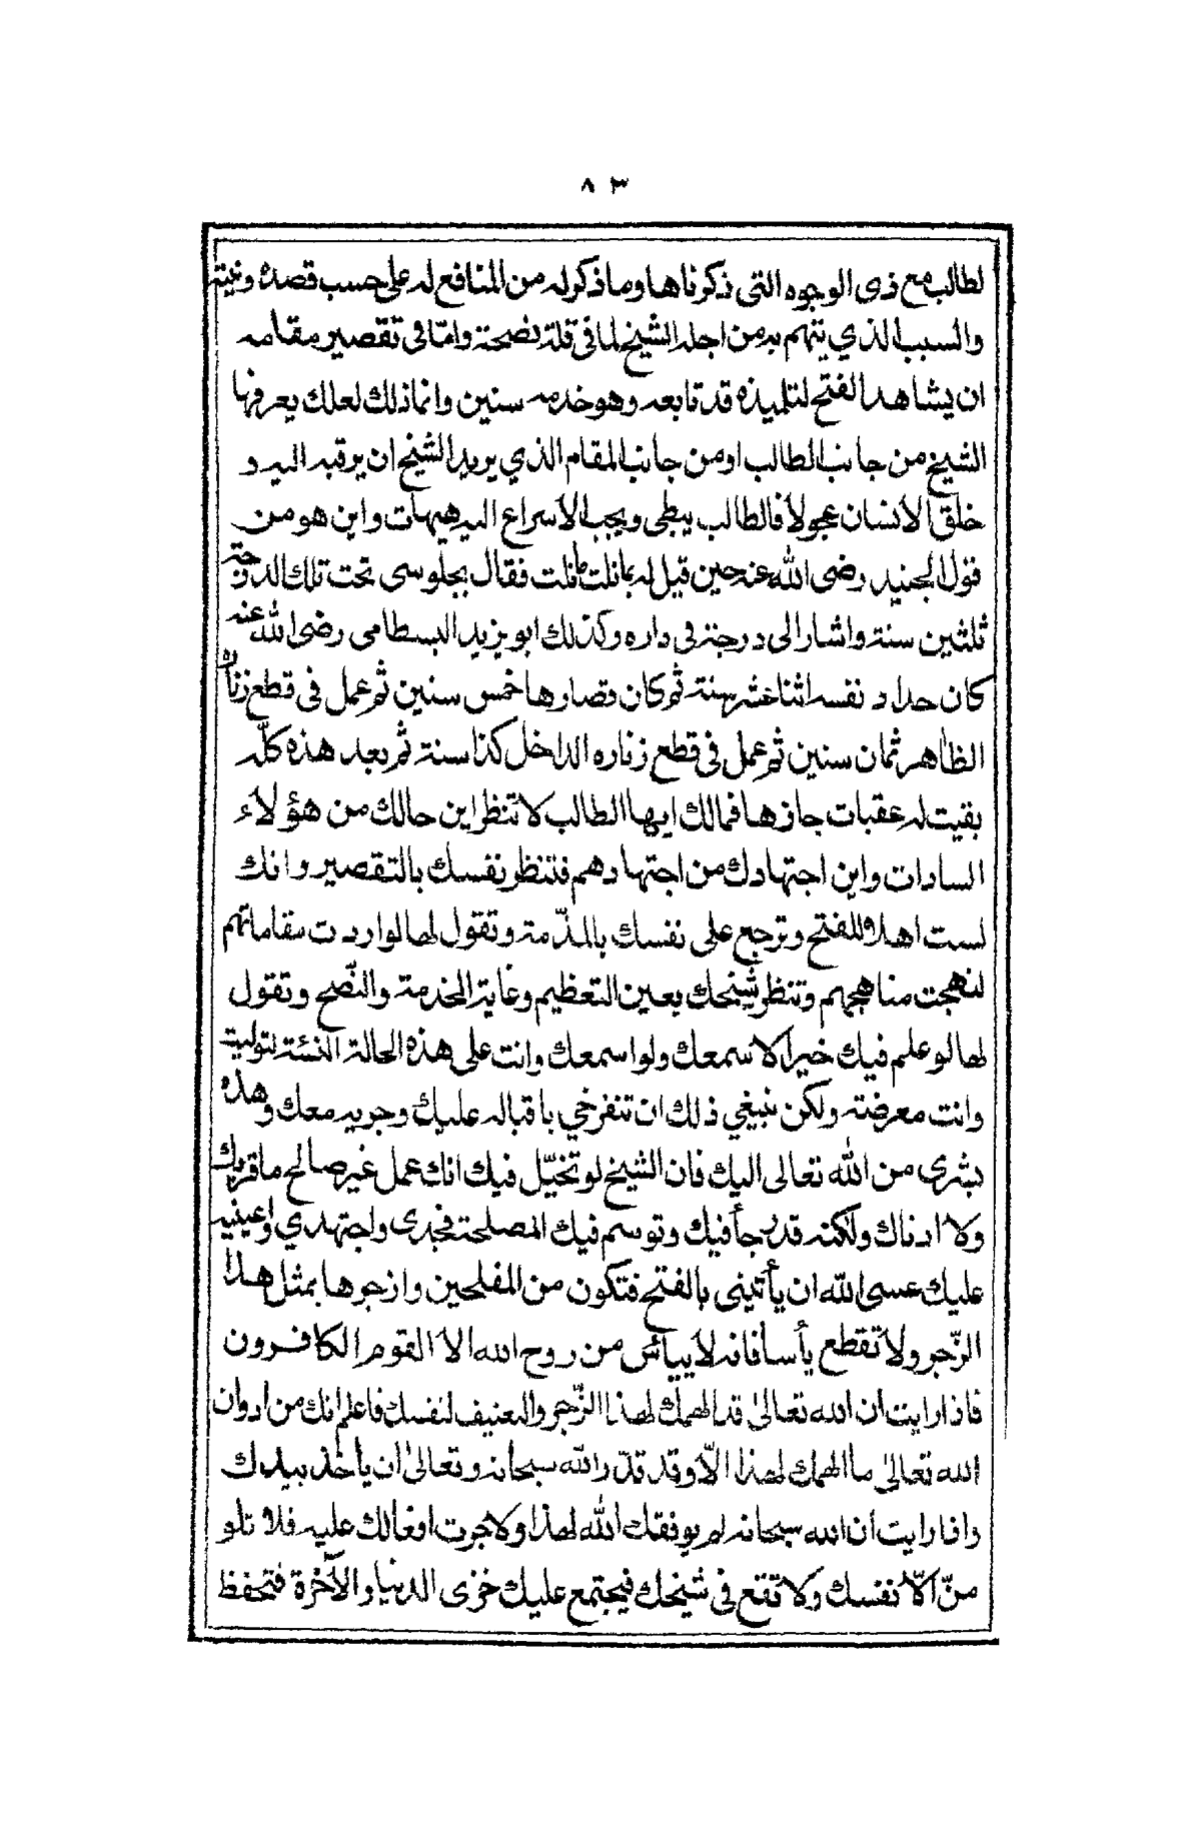 ٨٣
لطالب مع ذى الوجوه التى ذكرناها وما ذكر له من المنافع له على حسب قصده ونيته
والسبب الذي يتهم به من اجله الشيخ لما فى قلة نصحة وامّا فى تقصير مقامه
ان يشاهد الفتح لتلميذه قد تابعه وهو خدمه سنين وانما ذلك لعلك يعرفها
الشيخ من جانب الطالب او من جانب المقام الذي يريد الشيخ ان يرقبه اليه و
خلق الأنسان عجولا فالطالب يبطى ويجب الأسراع اليه هيهات واين هو من
قول الجنيد رضى الله عنه حين قيل له بما نلت ما نلت فقال بجلوسى تحت تلك الدرجة
ثلثين سنة واشار الى درجة فى داره وكذلك ابو يزيد البسطامى رضى الله عنه
كان حداد نفسه اثنا عشر سنة ثم كان قصارها خمس سنين ثم عمل فى قطع زناره
الظاهر ثمان سنين ثم عمل فى قطع زناره الداخل كذا سنة ثم بعد هذه كلّه
بقيت له عقبات جازها فمالك ايها الطالب لا تنظر اين حالك من هؤلاء
السادات واين اجتهادك من اجتهادهم فتنظر نفسك بالتقصير وانك
لست اهلا للفتح وترجع على نفسك بالمذّمة وتقول لها لو اردت مقاماتهم
لنهجت مناهجهم وتنظر شيخك بعين التعظيم وغاية الخدمة والنّصح وتقول
لها لو علم فيك خيرا لاسمعك ولو اسمعك وانت على هذه الحالة لتوليت
وانت معرضة ولكن ينبغي ذلك ان تنفرخي باقباله عليك وجريه معك وهذه
بشرى من الله تعالى اليك فان الشيخ لو تخيّل فيك انك عمل غير صالح ما قربك
ولا ادناك ولكنه قد رجأ فيك وتوسم فيك المصلحة فجدى واجتهدي واعينيه
عليك عسى الله ان يأتينى بالفتح فتكون من المفلحين وازجرها بمثل هذا
الزّجر ولا تقطع يأسا فانه لا ييأس من روح الله الا القوم الكافرون
فاذا رايت ان الله تعالىٰ قد الهمك لهذا الزّجر والتعنيف لنفسك فاعلم انك من
الله تعالىٰ ما الهمك لهذا الاّ وقد قدّر الله سبحانه وتعالىٰ ان يأخذ بيدك
واذا رايت ان الله سبحانه لم يوفقك الله لهذا ولا جرت افعالك عليه فلا تلو
منّ الاّ نفسك ولا تقع فى شيخك فيجتمع عليك خزى الدنيا والآخرة فتحفظ